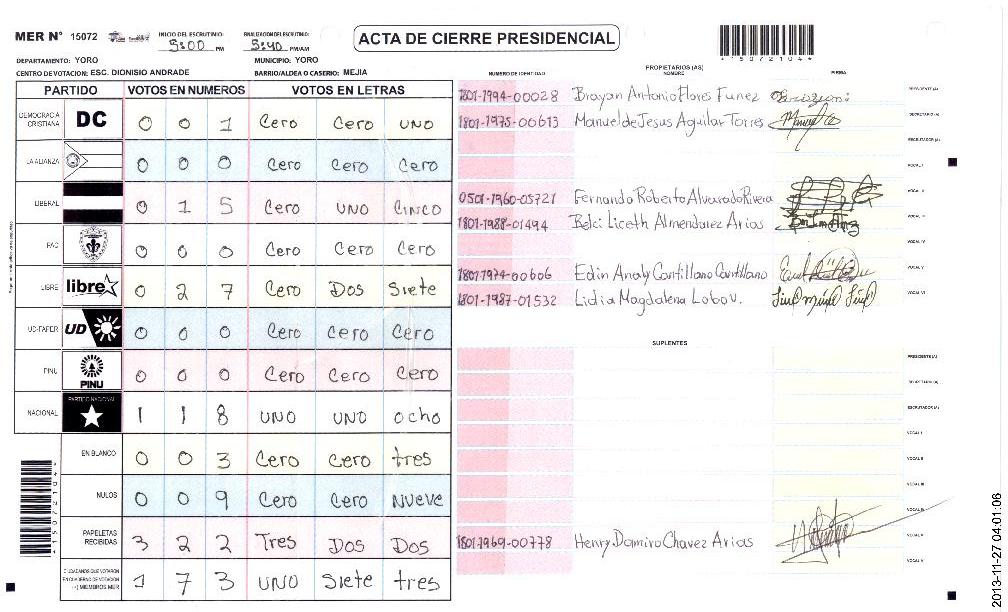 MER N° 15072
INICIO DEL ESCRUTINIO: 5:00 PM
FINALIZACION DEL ESCRUTINIO: 5:40 PM/AM
ACTA DE CIERRE PRESIDENCIAL
*15072104*
DEPARTAMENTO: YORO
MUNICIPIO: YORO
CENTRO DE VOTACION: ESC. DIONISIO ANDRADE
BARRIO/ALDEA O CASERIO: MEJIA
PARTIDO VOTOS EN NUMEROS VOTOS EN LETRAS
DEMOCRACIA CRISTIANA DC 0 0 1 Cero Cero UNO
LA ALIANZA 0 0 0 Cero Cero Cero
LIBERAL 0 1 5 Cero UNO CINCO
PAC 0 0 0 Cero Cero Cero
LIBRE libre 0 2 7 Cero DOS Siete
UD-FAPER UD 0 0 0 Cero Cero Cero
PINU PINU 0 0 0 Cero Cero Cero
NACIONAL PARTIDO NACIONAL 1 1 8 UNO UNO ocho
EN BLANCO 0 0 3 Cero Cero tres
NULOS 0 0 9 Cero Cero NUeve
PAPELETAS RECIBIDAS 3 2 2 Tres DOS DOS
CIUDADANOS QUE VOTARON EN CUADERNO DE VOTACION (+) MIEMBROS MER 1 7 3 UNO Siete tres
*15072104*
PROPIETARIOS (AS)
NUMERO DE IDENTIDAD NOMBRE FIRMA
1801-1994-00028 Brayan Antonio Flores Funez PRESIDENTE (A)
1801-1975-00613 Manuel de Jesus Aguilar Torres SECRETARIO (A)
ESCRUTADOR (A)
VOCAL I
0501-1960-05721 Fernando Roberto Alvarado Rivera VOCAL II
1801-1988-01494 Belci Liceth Almendarez Arias VOCAL III
VOCAL IV
1801-1974-00606 Edin Analy Cantillano Cantillano VOCAL V
1801-1987-01532 Lidia Magdalena Lobo V. VOCAL VI
SUPLENTES
PRESIDENTE (A)
SECRETARIO (A)
ESCRUTADOR (A)
VOCAL I
VOCAL II
VOCAL III
VOCAL IV
1801-1969-00778 Henry Damiro Chavez Arias VOCAL V
2013-11-27 04:01:06